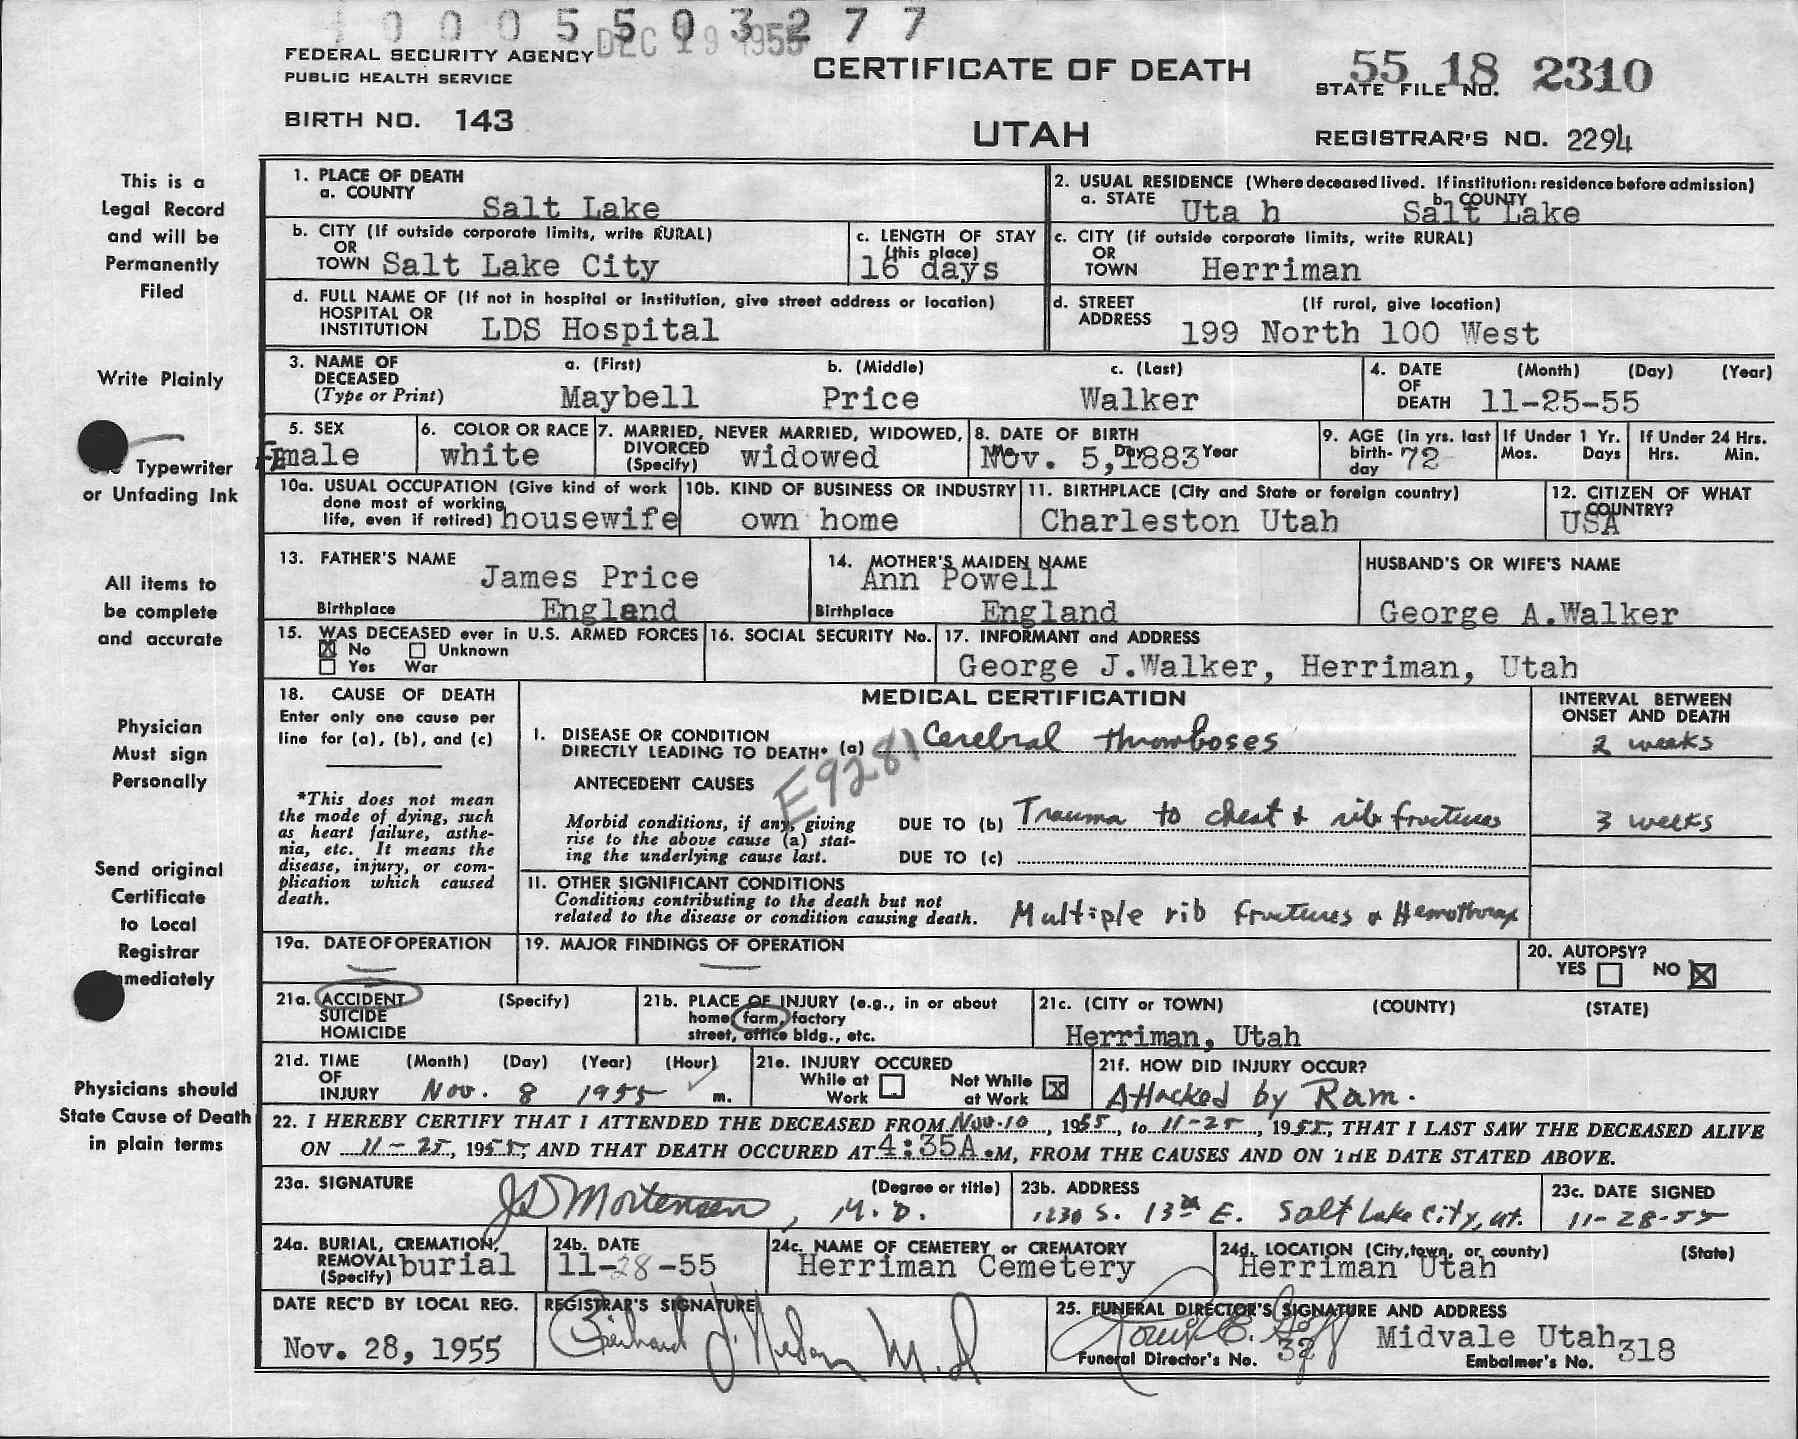 0 0 0 5 5 0 3 2 7 7
DEC 19 1955
FEDERAL SECURITY AGENCY
PUBLIC HEALTH SERVICE
BIRTH NO. 143
CERTIFICATE OF DEATH
UTAH
55 18 2310
STATE FILE NO.
REGISTRAR'S NO. 2294
This is a
Legal Record
and will be
Permanently
Filed
Write Plainly
Typewriter
or Unfading Ink
All items to
be complete
and accurate
Physician
Must sign
Personally
Send original
Certificate
to Local
Registrar
mmediately
Physicians should
State Cause of Death
in plain terms
1. PLACE OF DEATH
a. COUNTY Salt Lake
2. USUAL RESIDENCE (Where deceased lived. If institution: residence before admission)
a. STATE Uta h b. COUNTY Salt Lake
b. CITY (If outside corporate limits, write RURAL)
OR
TOWN Salt Lake City
c. LENGTH OF STAY
(this place)
16 days
c. CITY (if outside corporate limits, write RURAL)
OR
TOWN Herriman
d. FULL NAME OF (If not in hospital or institution, give street address or location)
HOSPITAL OR
INSTITUTION LDS Hospital
d. STREET (If rural, give location)
ADDRESS 199 North 100 West
3. NAME OF
DECEASED
(Type or Print)
a. (First) b. (Middle) c. (Last)
Maybell Price Walker
4. DATE (Month) (Day) (Year)
OF
DEATH 11-25-55
5. SEX
Female
6. COLOR OR RACE
white
7. MARRIED, NEVER MARRIED, WIDOWED,
DIVORCED
(Specify) widowed
8. DATE OF BIRTH
Nov. 5, 1883 Year
9. AGE (in yrs. last
birth-
day 72
If Under 1 Yr.
Mos. Days
If Under 24 Hrs.
Hrs. Min.
10a. USUAL OCCUPATION (Give kind of work
done most of working
life, even if retired) housewife
10b. KIND OF BUSINESS OR INDUSTRY
own home
11. BIRTHPLACE (City and State or foreign country)
Charleston Utah
12. CITIZEN OF WHAT
COUNTRY?
USA
13. FATHER'S NAME
James Price
Birthplace England
14. MOTHER'S MAIDEN NAME
Ann Powell
Birthplace England
HUSBAND'S OR WIFE'S NAME
George A.Walker
15. WAS DECEASED ever in U.S. ARMED FORCES
☒ No ☐ Unknown
☐ Yes War
16. SOCIAL SECURITY No.
17. INFORMANT and ADDRESS
George J.Walker, Herriman, Utah
18. CAUSE OF DEATH
Enter only one cause per
line for (a), (b), and (c)
*This does not mean
the mode of dying, such
as heart failure, asthe-
nia, etc. It means the
disease, injury, or com-
plication which caused
death.
MEDICAL CERTIFICATION
INTERVAL BETWEEN
ONSET AND DEATH
I. DISEASE OR CONDITION
DIRECTLY LEADING TO DEATH* (a) Cerebral thromboses 2 weeks
E9281
ANTECEDENT CAUSES
Morbid conditions, if any, giving
rise to the above cause (a) stat-
ing the underlying cause last.
DUE TO (b) Trauma to chest & rib fractures 3 weeks
DUE TO (c)
11. OTHER SIGNIFICANT CONDITIONS
Conditions contributing to the death but not
related to the disease or condition causing death. Multiple rib fractures & Hemothorax
19a. DATE OF OPERATION
19. MAJOR FINDINGS OF OPERATION
20. AUTOPSY?
YES ☐ NO ☒
21a. ACCIDENT (Specify)
SUICIDE
HOMICIDE
21b. PLACE OF INJURY (e.g., in or about
home, farm, factory
street, office bldg., etc.
21c. (CITY or TOWN) (COUNTY) (STATE)
Herriman, Utah
21d. TIME (Month) (Day) (Year) (Hour)
OF
INJURY Nov. 8 1955 m.
21e. INJURY OCCURED
While at ☐ Not While ☒
Work at Work
21f. HOW DID INJURY OCCUR?
Attacked by Ram.
22. I HEREBY CERTIFY THAT I ATTENDED THE DECEASED FROM Nov. 10, 1955, to 11-25, 1955, THAT I LAST SAW THE DECEASED ALIVE
ON 11-25, 1955, AND THAT DEATH OCCURED AT 4:35A.M, FROM THE CAUSES AND ON THE DATE STATED ABOVE.
23a. SIGNATURE (Degree or title)
JD Mortensen, M.D.
23b. ADDRESS
1230 S. 13th E. Salt Lake City, Ut.
23c. DATE SIGNED
11-28-55
24a. BURIAL, CREMATION,
REMOVAL
(Specify) burial
24b. DATE
11-28-55
24c. NAME OF CEMETERY or CREMATORY
Herriman Cemetery
24d. LOCATION (City, town, or county) (State)
Herriman Utah
DATE REC'D BY LOCAL REG.
Nov. 28, 1955
REGISTRAR'S SIGNATURE
M.D.
25. FUNERAL DIRECTOR'S SIGNATURE AND ADDRESS
Midvale Utah
Funeral Director's No. 32 Embalmer's No. 318